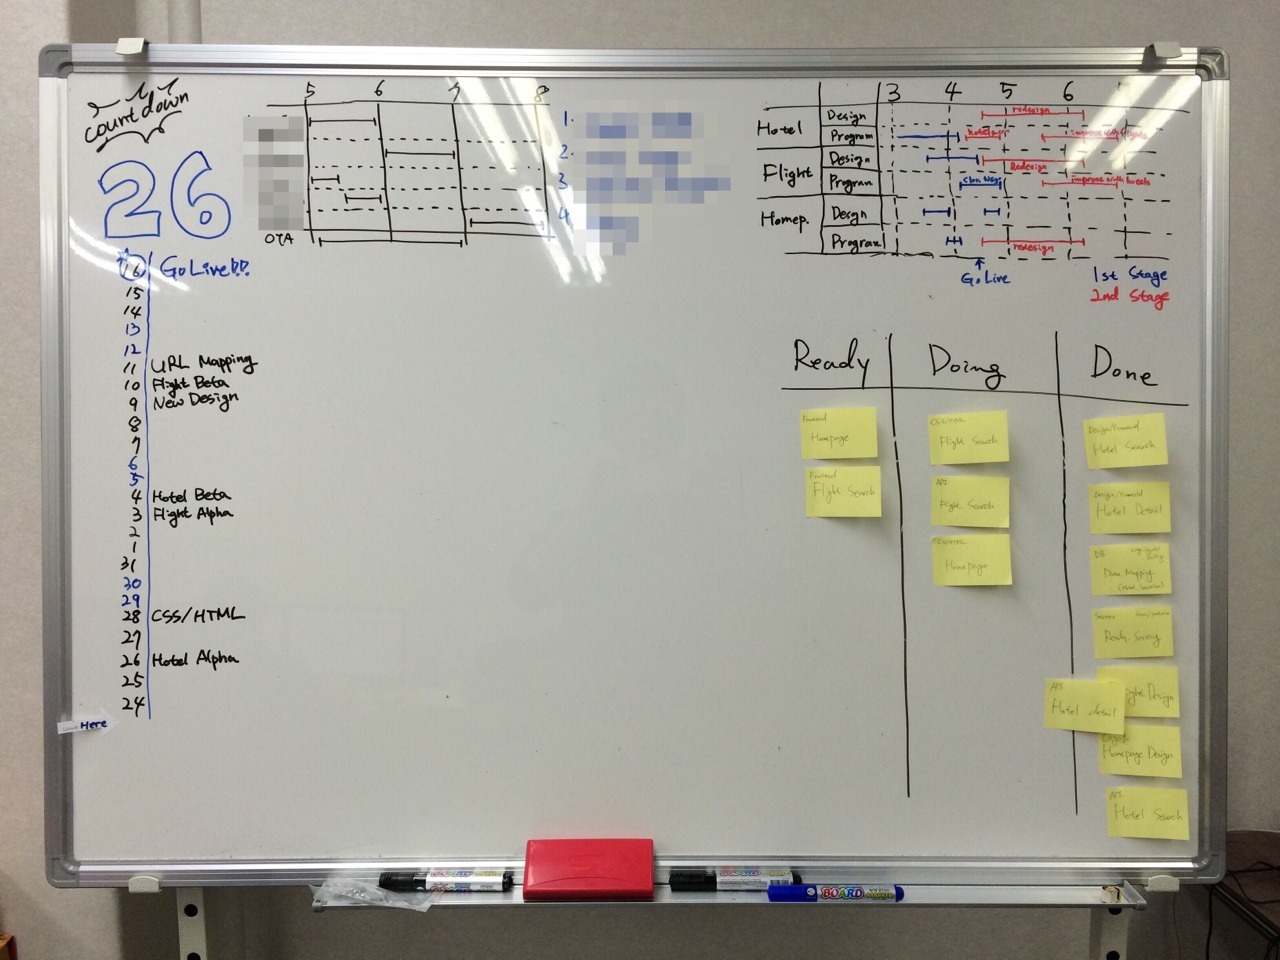 countdown
26
16 Go Live!!
15
14
13
12
11 URL Mapping
10 Flight Beta
9 New Design
8
7
6
5
4 Hotel Beta
3 Flight Alpha
2
1
31
30
29
28 CSS/HTML
27
26 Hotel Alpha
25
24
Here
5 6 7 8
OTA
1.
2.
3
4
3 4 5 6
Hotel
Design redesign
Program improve with flights
Flight
Design Redesign
Program improve with hotels
Homep.
Design
Program redesign
Go Live
1st Stage
2nd Stage
Ready Doing Done
Frontend
Homepage
Frontend
Flight Search
CSS/HTML
Flight Search
API
Flight Search
CSS/HTML
Homepage
Design/Frontend
Hotel Search
Design/Frontend
Hotel Detail
DB
Data Mapping
Server
Ready
API
Hotel detail
Design
Homepage Design
API
Hotel Search
BOARD
MARKER